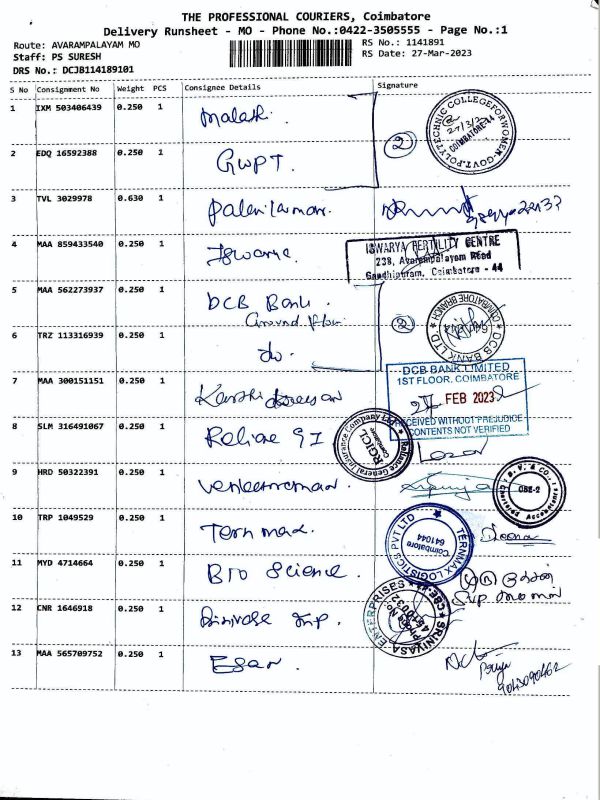 THE PROFESSIONAL COURIERS, Coimbatore
Delivery Runsheet - MO - Phone No.:0422-3505555 - Page No.:1
Route: AVARAMPALAYAM MO
RS No.: 1141891
Staff: PS SURESH
RS Date: 27-Mar-2023
DRS No.: DCJB114189101
S No Consignment No Weight PCS Consignee Details Signature
1 IXM 503406439 0.250 1 Malathi.
GOVT. POLYTECHNIC COLLEGE FOR WOMEN
27/3/23
COIMBATORE-44
2
2 EDQ 16592388 0.250 1 GWPT.
3 TVL 3029978 0.630 1
4 MAA 859433540 0.250 1 Iswarya.
ISWARYA FERTILITY CENTRE
238, Avarampalayam Road
Gandhipuram, Coimbatore - 44
5 MAA 562273937 0.250 1 DCB Bank.
Ground floor
2
DCB BANK LTD. * COIMBATORE BRANCH *
6 TRZ 113316939 0.250 1 do.
DCB BANK LIMITED
1ST FLOOR, COIMBATORE
27 FEB 2023
RECEIVED WITHOUT PREJUDICE
CONTENTS NOT VERIFIED
7 MAA 300151151 0.250 1
8 SLM 316491067 0.250 1 Reliance GI
Reliance General Insurance Company Ltd
RGICL
Coimbatore
9 HRD 50322391 0.250 1
& CO.,
Chartered Accountants
CBE-2
10 TRP 1049529 0.250 1 Tern max.
TERNMAX LOGISTICS PVT LTD
Coimbatore
641044
11 MYD 4714664 0.250 1 Bio Science.
12 CNR 1646918 0.250 1
SRINIVASA ENTERPRISES * CBE-
13 MAA 565709752 0.250 1 Esar
Priya
9043090462